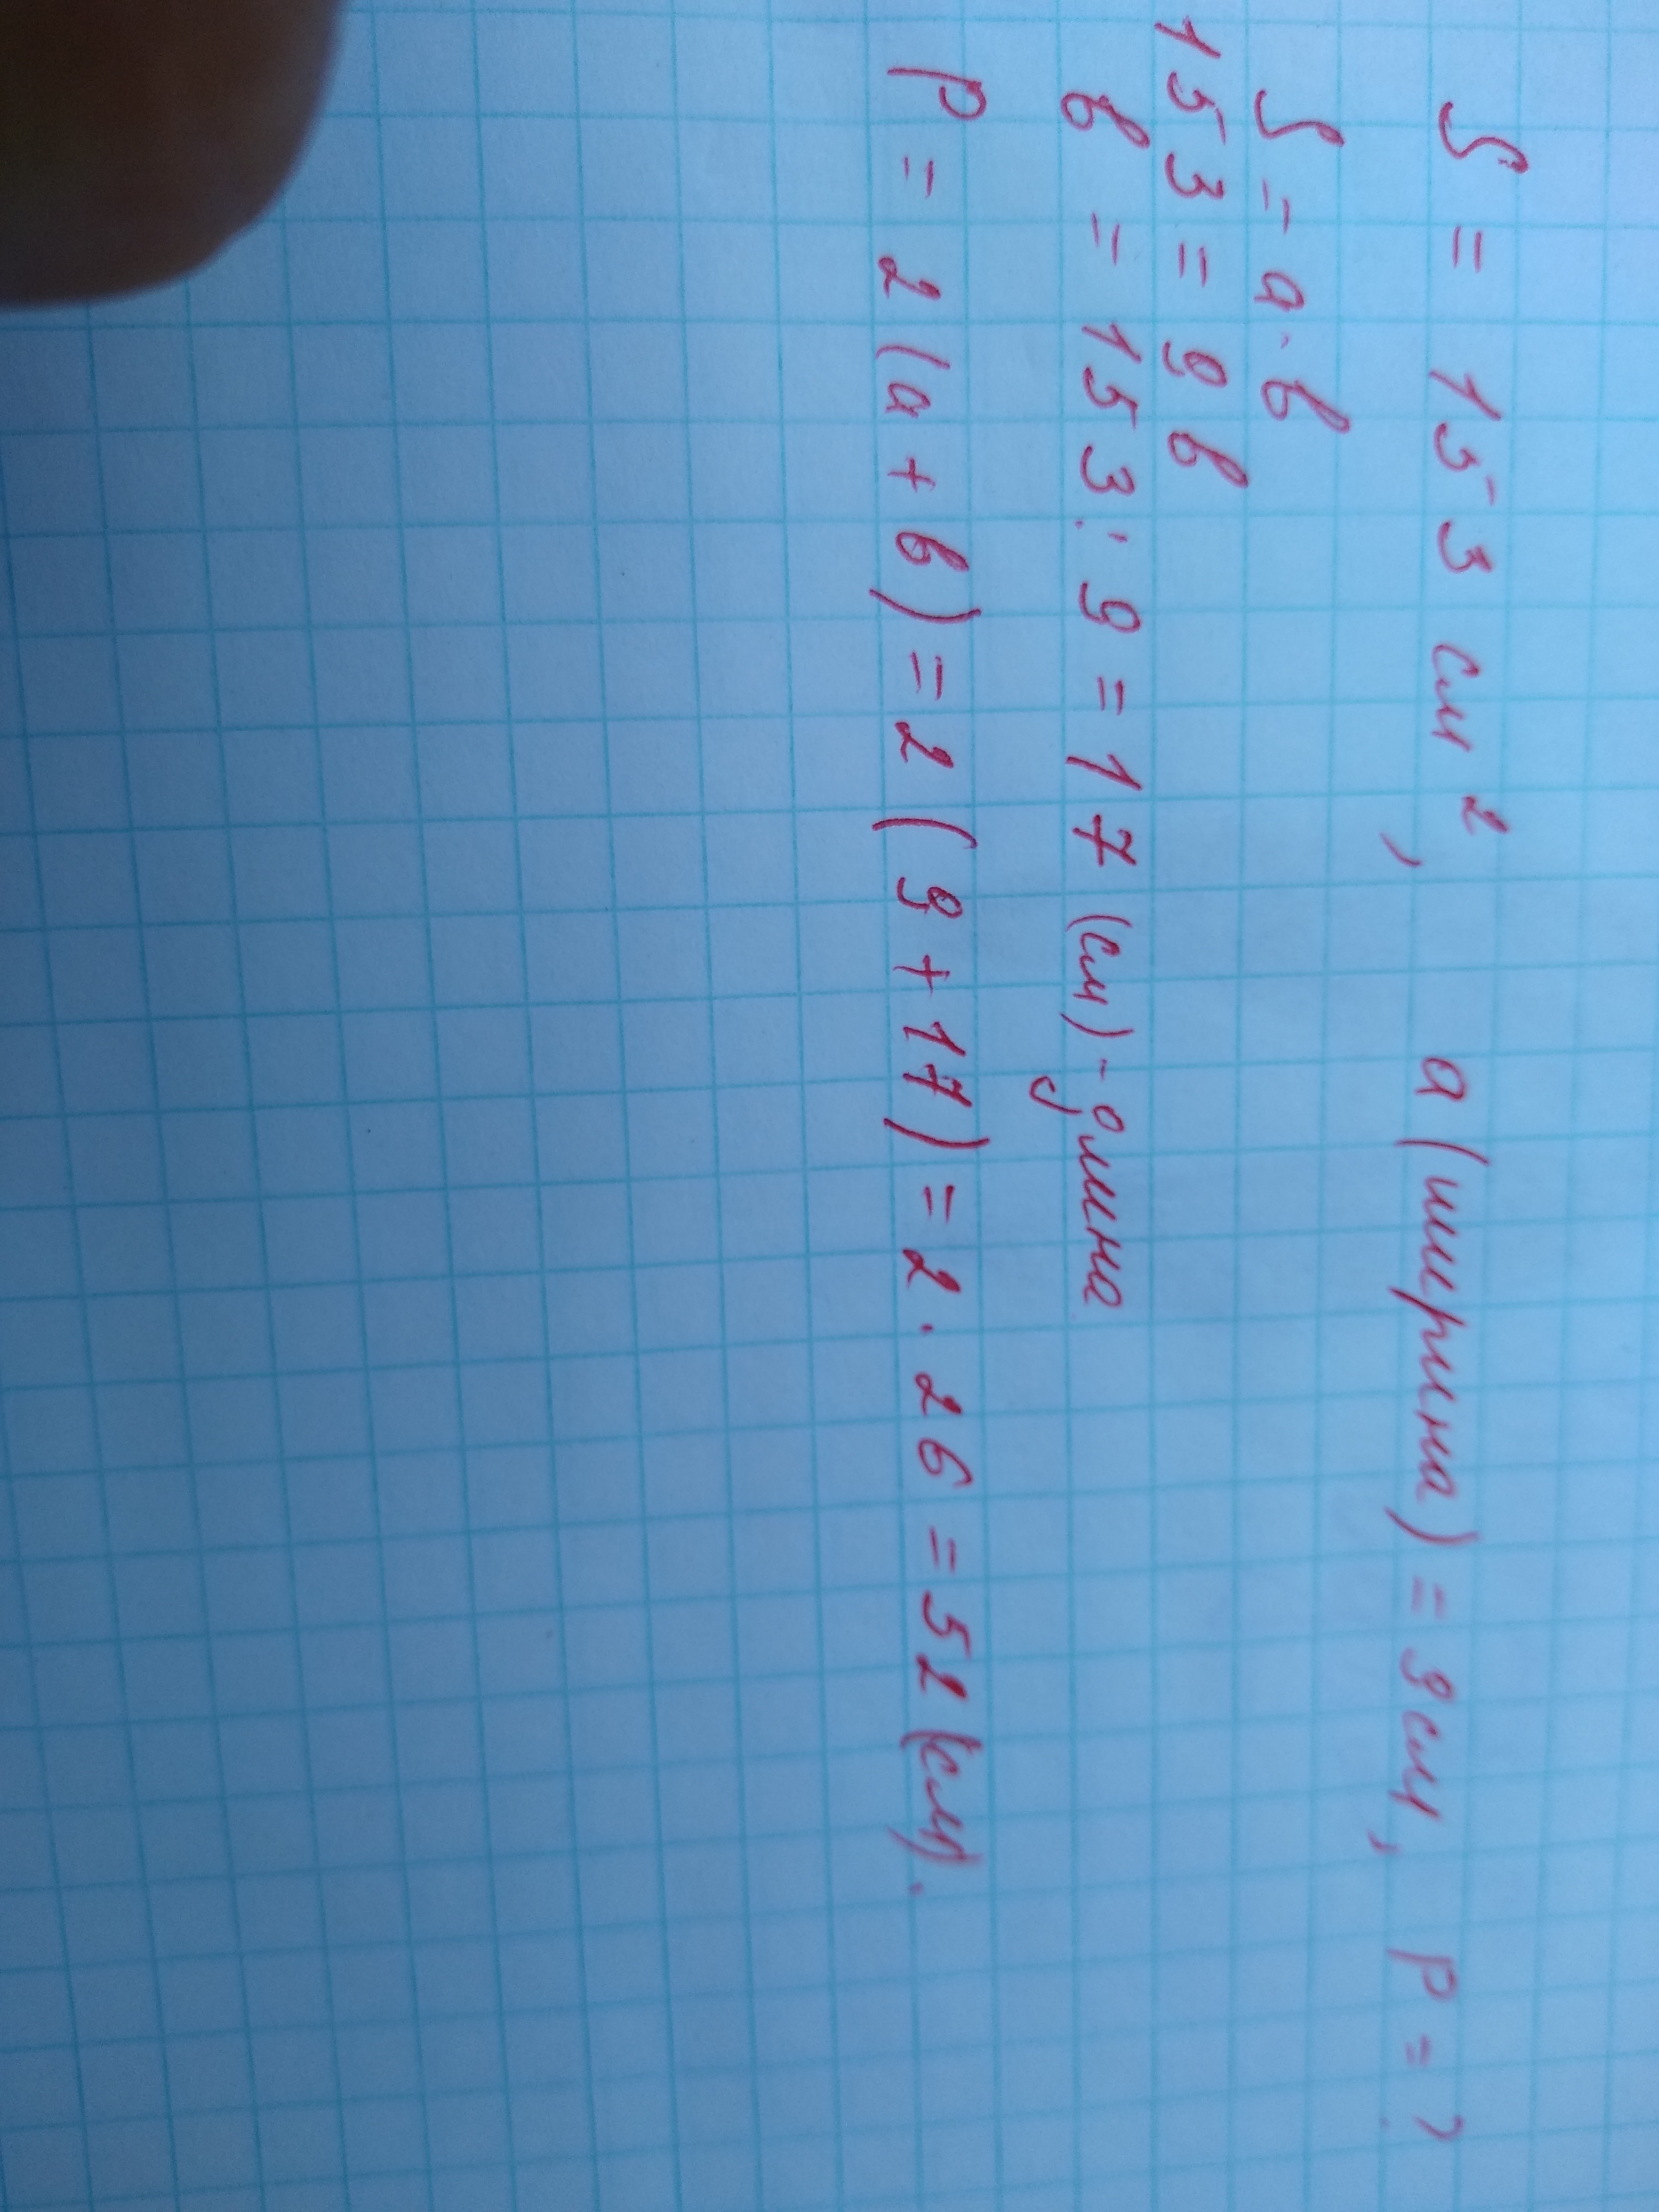 S = 153 см², а (ширина) = 9см, P = ?
S = а · в
153 = 9 в
в = 153 : 9 = 17 (см) - длина
P = 2 (а + в) = 2 (9 + 17) = 2 · 26 = 52 (см).